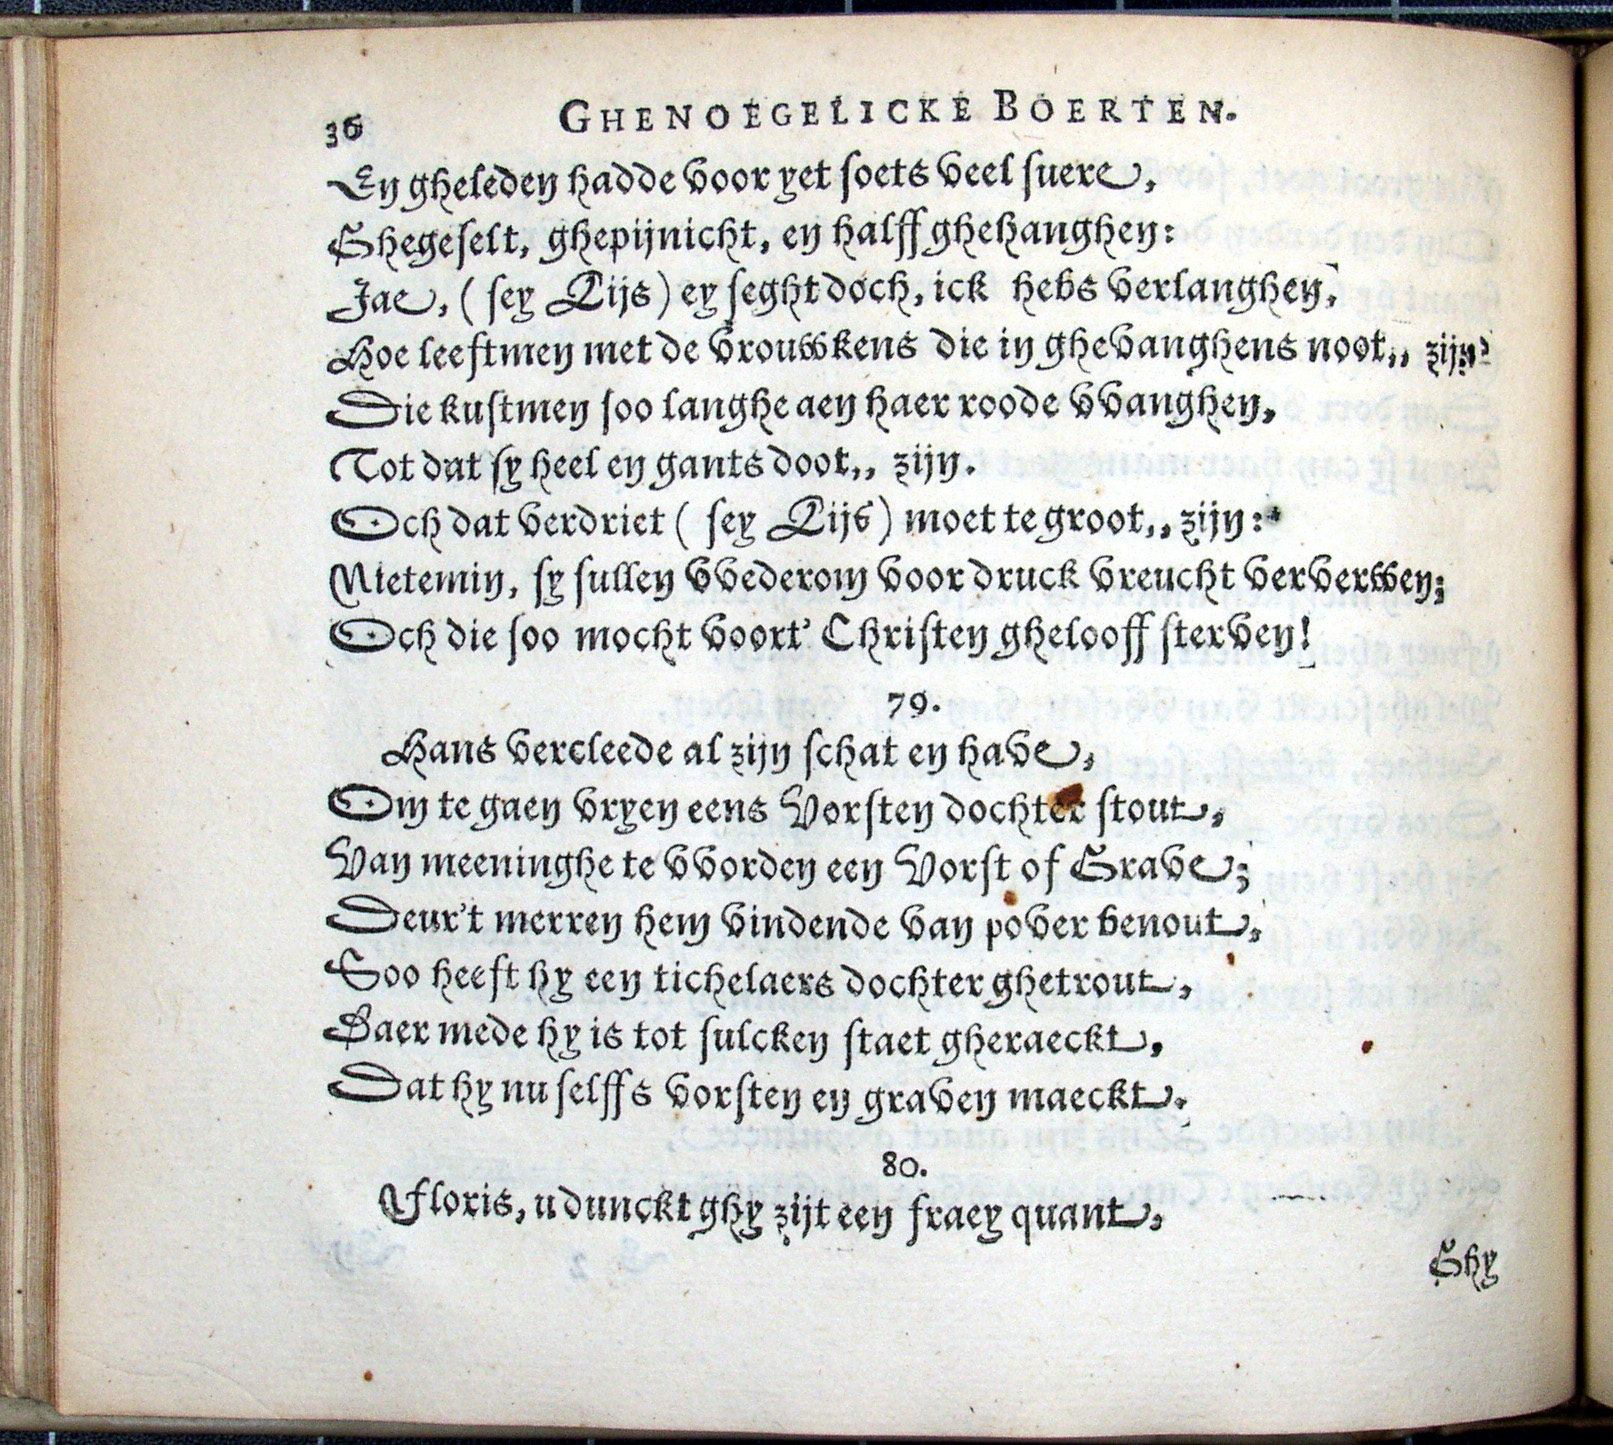 36 GHENOEGELICKE BOERTEN.
En gheleden hadde voor yet soets veel suere,
Ghegeselt, ghepijnicht, en halff ghehanghen:
Jae, (sey Lijs) ey seght doch, ick hebs verlanghen,
Hoe leeftmen met de vrouwkens die in ghevanghens noot,, zijn?
Die kustmen soo langhe aen haer roode vvanghen,
Tot dat sy heel en gants doot,, zijn.
Och dat verdriet (sey Lijs) moet te groot,, zijn:
Nietemin, sy sullen vvederom voor druck vreucht ververwen;
Och die soo mocht voort' Christen ghelooff sterven!
79.
Hans vercleede al zijn schat en have,
Om te gaen vryen eens Vorsten dochter stout,
Van meeninghe te vvorden een Vorst of Grave;
Deur't merren hem vindende van pover benout,
Soo heeft hy een tichelaers dochter ghetrout,
Daer mede hy is tot sulcken staet gheraeckt,
Dat hy nu selffs vorsten en graven maeckt.
80.
Floris, u dunckt ghy zijt een fraey quant,
Ghy